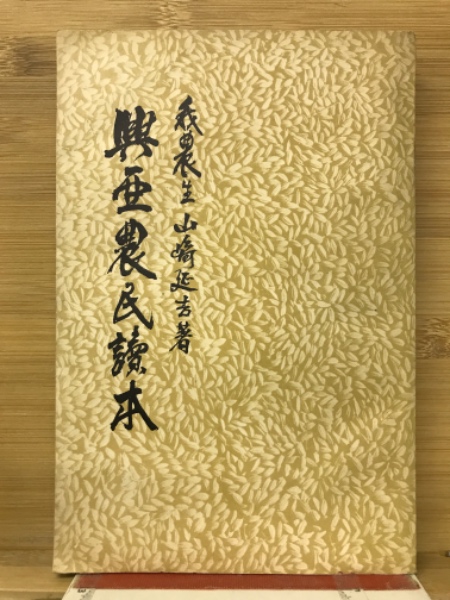 我農生 山崎延吉著
興亜農民讀本